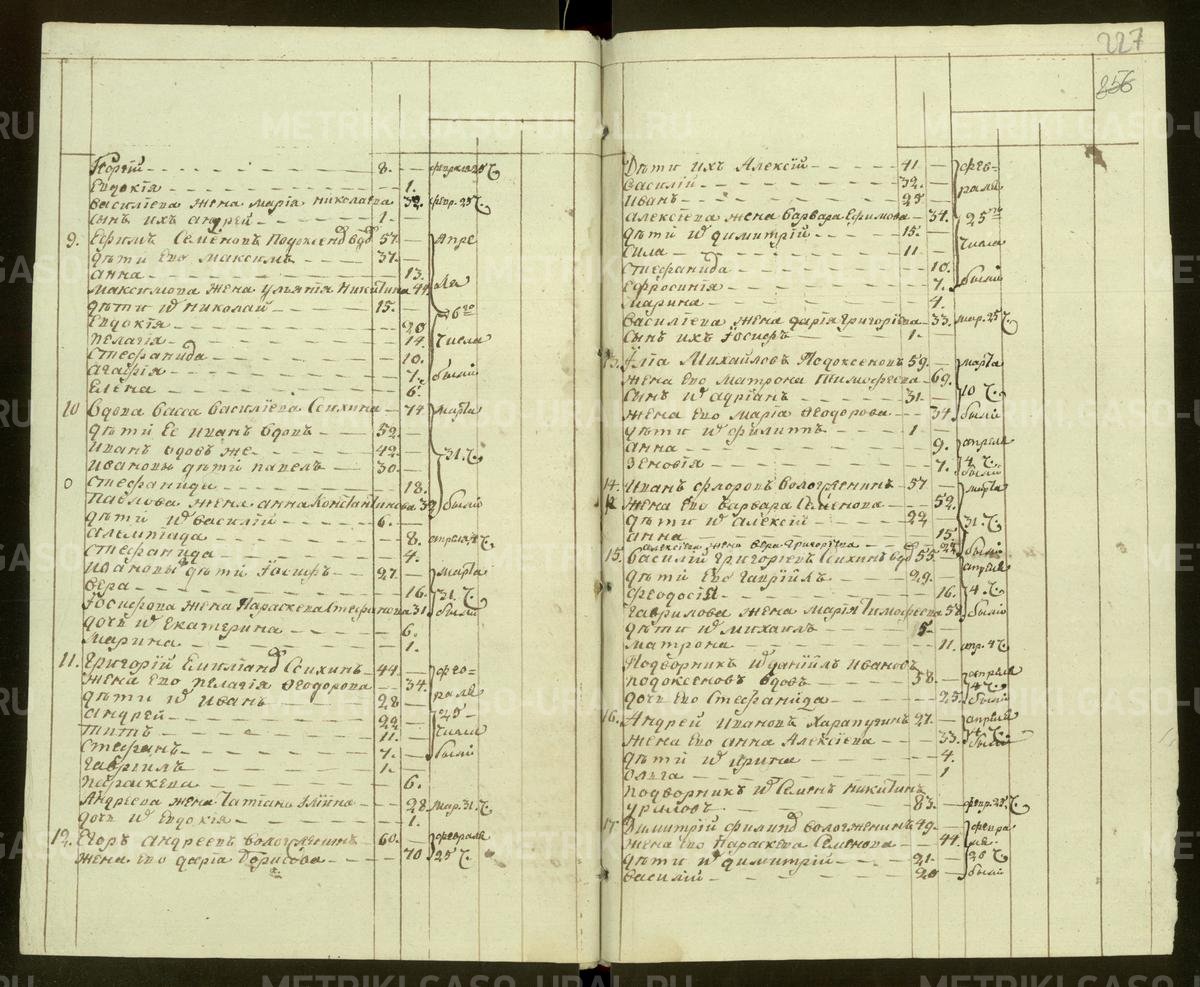 227
256
Георгій 8. февраля 25 ч.
Евдокія 1.
Василіева жена Марія Николаева 32. февр. 25 ч.
сынъ ихъ Андрей 1.
9. Ефимъ Семеновъ Подоксеновъ вдовъ 57. Апре
дѣти его Максимъ 37.
Анна 13. ля
Максимова жена Ульянія Никитина 44.
дѣти их Николай 15.
Евдокія 20
Пелагія 14. числа
Стефанида 10.
Агафія 7. были
Елена 6.
10 Вдова Васса Василіева 74. марта
дѣти Ее Иванъ вдовъ 52.
Иванъ вдовъ же 42. 31. ч.
Ивановы дѣти Павелъ 30.
Стефанида 18.
Павлова жена Анна Константинова 32 были
дѣти их Василій 6.
8. апреля ч.
Стефанида 4.
Ивановы дѣти Іосифъ 27. марта
Вера 16. 31. ч.
Іосифова жена Параскева Стефанова 31 были
дочь их Екатерина 6.
Марина 1.
11. Григорій 44. февра
жена его Пелагія Феодорова 34.
дѣти их Иванъ 28 раля
Андрей 22 25
Титъ 11. числа
Стефанъ 7. были
Гавріилъ 1.
Параскева 6.
Андреева жена Татіана Иліина 28. мар. 31. ч.
дочь их Евдокія 1.
12. Егоръ Андреевъ Вологженинъ 60. февраля
жена его Дарія Борисова 70 25 ч.
Дѣти ихъ Алексій 41 фев-
Василій 32. раля
Иванъ 25
Алексіева жена Варвара Ефимова 34. 25го
дѣти их Димитрій 15. числа
Сила 11
Стефанида 10. были
Ефросинія 7.
Марина 4.
Василіева жена Дарія Григоріева 33. мар. 25 ч.
сынъ ихъ Іосифъ 1.
13. Илія Михайловъ Подоксеновъ 59. марта
жена его Матрона Тимофеева 69.
сынъ их Адріанъ 31 10 ч.
жена его Марія Феодорова 34. были
дѣти их Филиппъ 1
Анна 9. апреля
Зеновія 7. 4 ч. были
14. Иванъ Флоровъ Вологженинъ 57 марта
жена его Варвара Семенова 52.
дѣти их Алексій 22 31. ч.
Анна 15 были
Алексіева жена Вера Григоріева
15. Василій Григоріевъ вдовъ 55. апреля
дѣти его Гавріилъ 29.
Феодосія 16. 4. ч.
Гаврилова жена Марія Тимофеева были
дѣти их Михаилъ 5
Матрона 11. апр. 4 ч.
Подворникъ их Даніилъ Ивановъ
Подоксеновъ вдовъ 58. апреля
дочь его Стефанида 25. 4 ч. были
16. Андрей Ивановъ 27. апреля
жена его Анна Алексіева 33. 4 ч. были
дѣти их Ирина 4.
Ольга 1
подворникъ их Семенъ Никитинъ
83. февр. 25. ч.
17. Димитрій Вологженинъ 49. февра
жена его Параскева Семенова 44. ля.
дѣти их Димитрій 21.
Василій 20 были